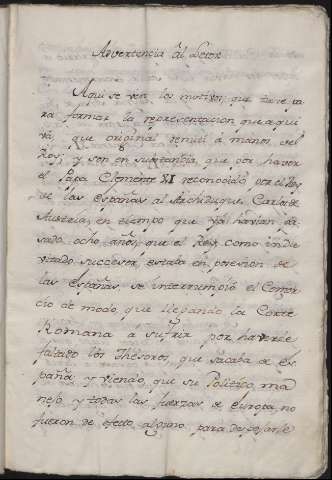 Advertencia al Letor
Aqui se ven los motivos que tuve pa
ra formar la representacion que aqui
vá, que original remiti á manos del
Rey, y son en sustancia, que por haver
el Papa Clemente XI reconocido por el Rey
de las españas al Archiduque Carlos de
Austria, en tiempo que ya havian pa
sado ocho años, que el Rey como indu
vitado succesor, estaba en posesion de
las españas se interrumpió el Comer
cio de modo, que llegando la Corte
Romana a sufrir por haverle
faltado los Thesoros, que sacaba de Es
paña y viendo, que su Politico ma
nejo, y todas las fuerzas de europa, no
fueron de efecto alguno para despojarle